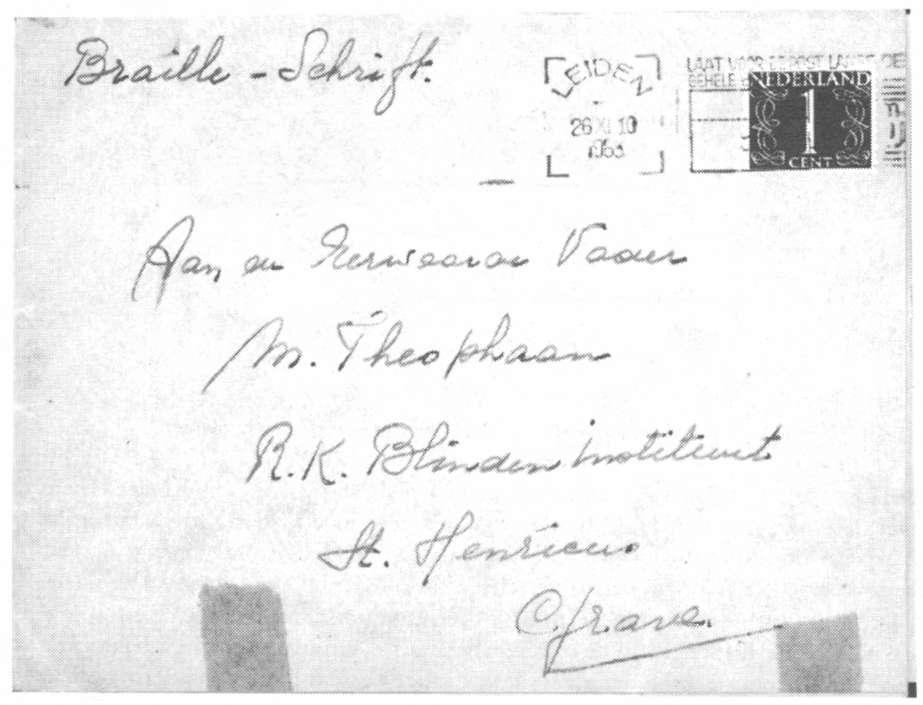 Braille - Schrift.
LEIDEN
26 XI 10
1953
LAAT VOOR
GEHELE
NEDERLAND
1
CENT
Aan den Eerwaarden Vader
M. Theophaan
R.K. Blinden instituut
St. Henricus
Grave